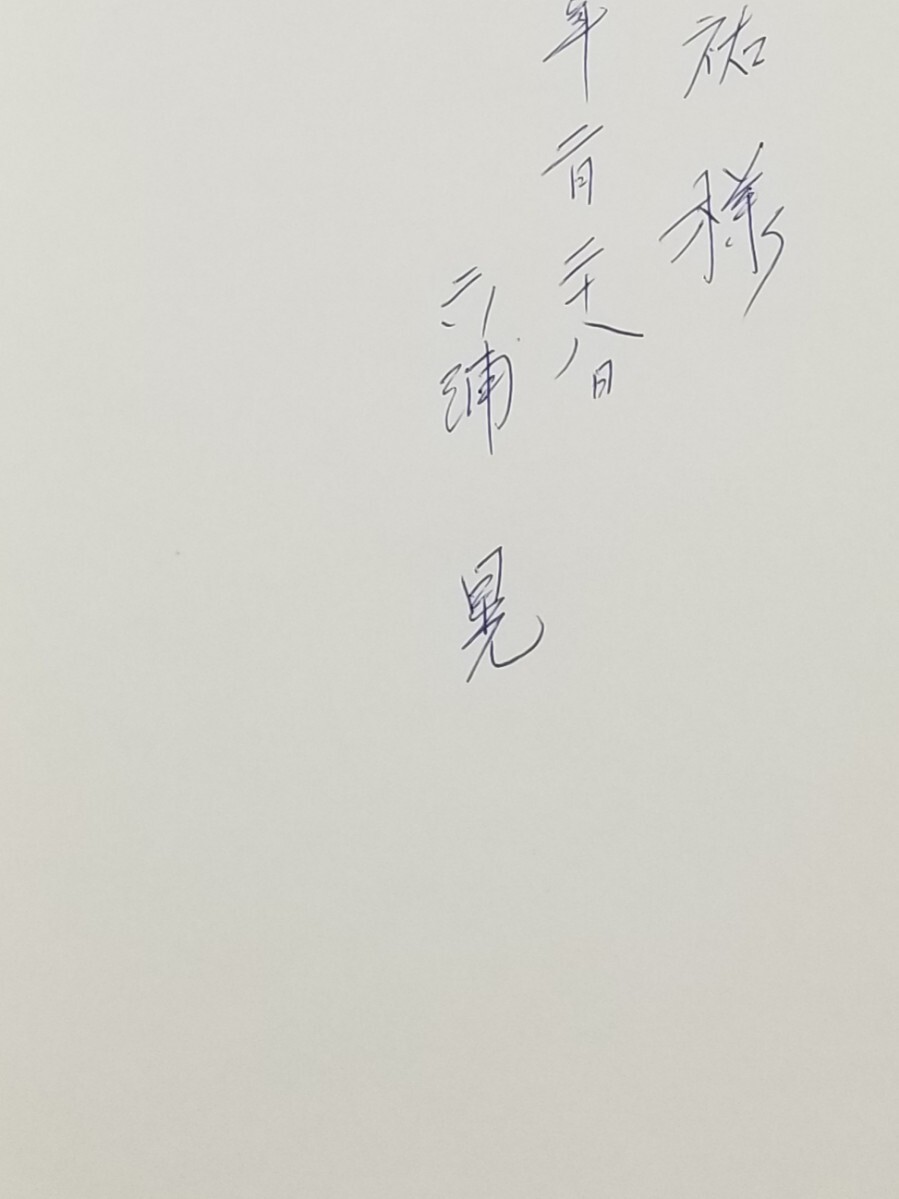 祐様
年二月二十八日
六浦 晃